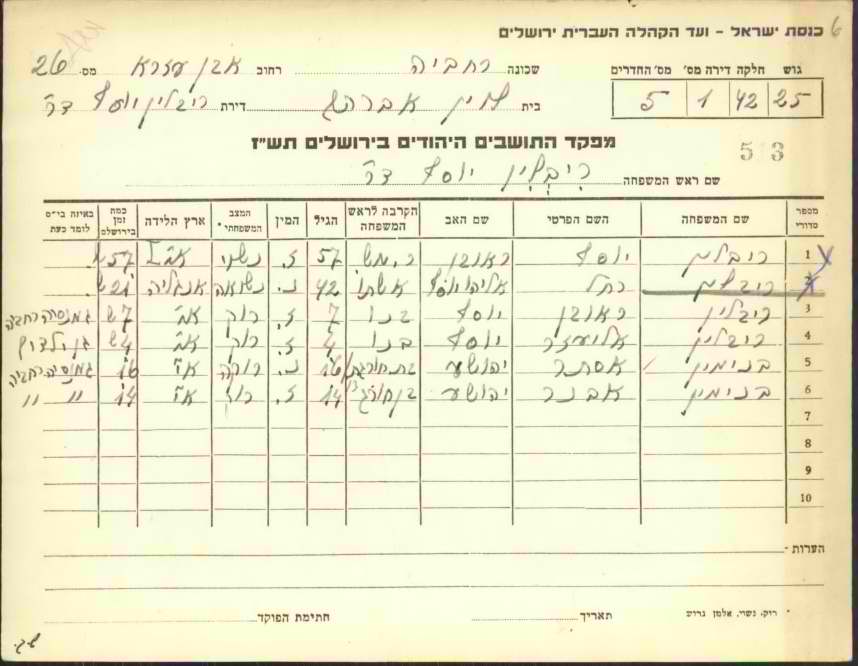 כנסת ישראל – ועד הקהלה העברית ירושלים
6
גוש חלקה דירה מס׳ מס׳ החדרים
25 42 1 5
שכונה רחביה רחוב אבן עזרא מס. 26
בית אברהם דירת ריבלין יוסף דר׳
מפקד התושבים היהודים בירושלים תש״ז
53
שם ראש המשפחה רִיבְלִין יוסף דר׳
מספר סדורי שם המשפחה השם הפרטי שם האב הקרבה לראש המשפחה הגיל המין המצב המשפחתי * ארץ הלידה כמה זמן בירושלם באיזה בי״ס לומד כעת
1 ריבלין יוסף ראובן ר.מש. 57 ז. נשוי א״י 57 ש׳
2 ריבלין רחל אליהו יוסף אשתו 42 נ. נשואה אנגליה 21 ש׳
3 ריבלין ראובן יוסף בנו 7 ז. רוק א״י 7 ש׳ גמנסיה רחביה
4 ריבלין אליעזר יוסף בנו 4 ז. רוק א״י 4 ש׳ גן ילדים
5 בנימין אסתר יהושע בת חורגת 16 נ. רוקה א״י 16 גמנסיה רחביה
6 בנימין אבנר יהושע בן חורג 14 ז. רוק א״י 14 ״ ״
7
8
9
10
הערות -
* רוק, נשוי, אלמן גרוש תאריך חתימת הפוקד